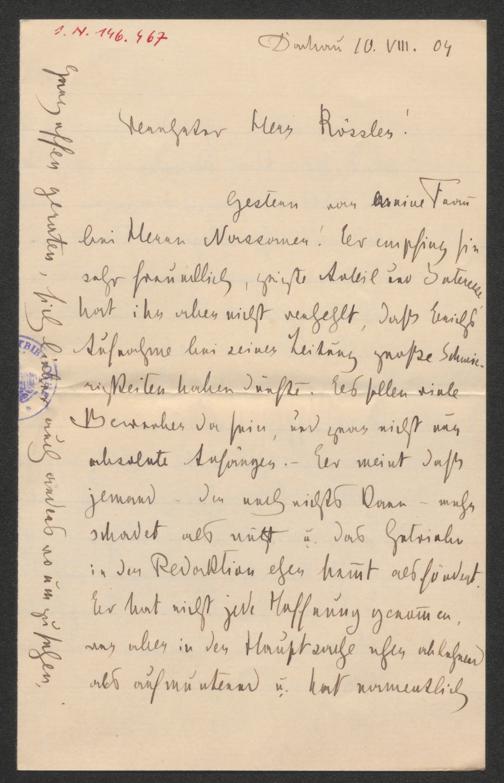 I. N. 146.467
Dachau 10. VIII. 04
Verehrter Herr Rössler!
Gestern war meine Frau
bei Herrn Nassauer! Er empfing sie
sehr freundlich, zeigte Anteil und Interesse
hat ihr aber nicht verhehlt, daß Erichs
Aufnahme bei seiner Zeitung große Schwie-
rigkeiten haben dürfte. Es sollen viele
Bewerber da sein, und zwar nicht nur
absolute Anfänger. – Er meint daß
jemand – der noch nichts kann – mehr
schadet als nützt u. das Getriebe
in der Redaktion eher hemmt als fördert.
Er hat nicht jede Hoffnung genommen,
war aber in der Hauptsache eher ablehnend
als aufmunternd u. hat namentlich
geraten, sich lieber auch anders wo umzusehen.